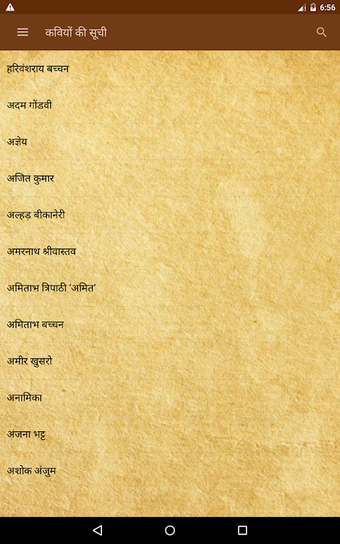 6:56
कवियों की सूची
हरिवंशराय बच्चन
अदम गोंडवी
अज्ञेय
अजित कुमार
अल्हड़ बीकानेरी
अमरनाथ श्रीवास्तव
अमिताभ त्रिपाठी 'अमित'
अमिताभ बच्चन
अमीर खुसरो
अनामिका
अंजना भट्ट
अशोक अंजुम